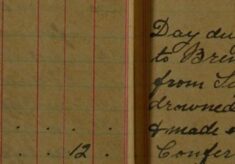 12
Day du
to Brem
from Su
drowned
& made a
Confer